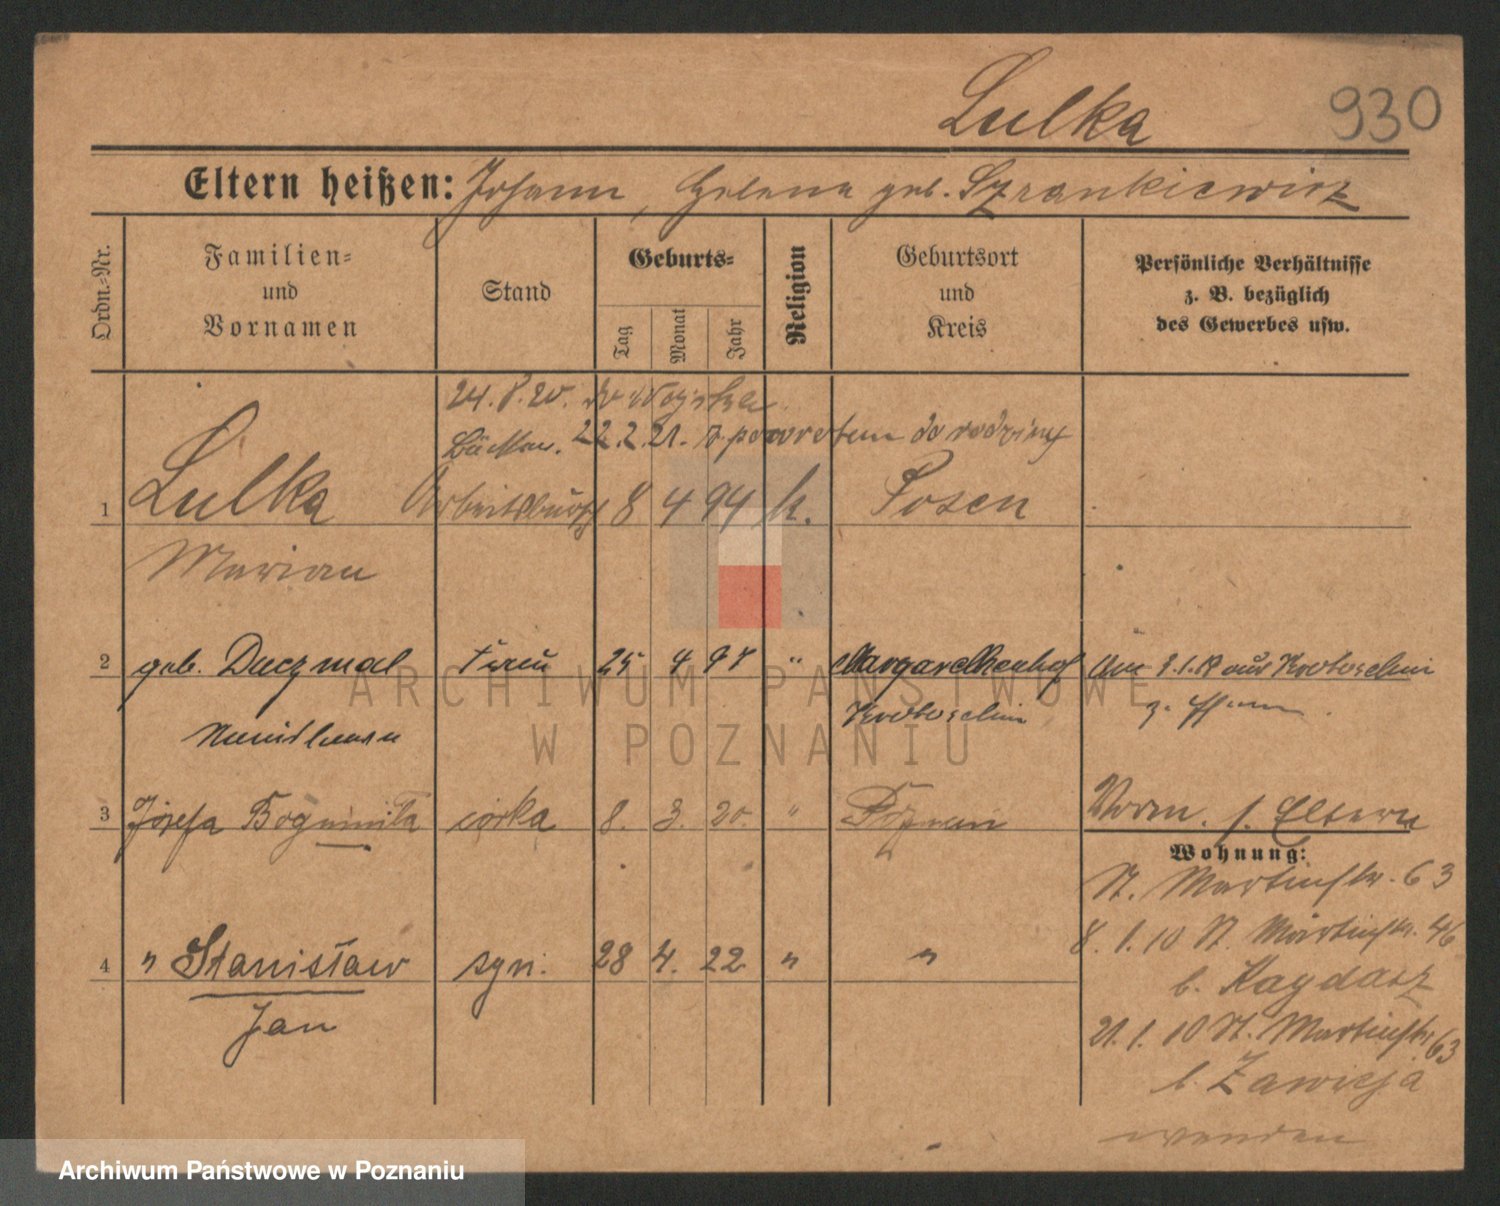 Lulka 930
Eltern heißen: Johann, Helena geb. Szrankiewicz
Ordn.-Nr.
Familien-
und
Vornamen
Stand
Geburts-
Tag
Monat
Jahr
Religion
Geburtsort
und
Kreis
Persönliche Verhältnisse
z. B. bezüglich
des Gewerbes usw.
24.8.20. do wojska
22.2.21. z powrotem do rodziny
1 Lulka Arbeitsbursch 8 4 94 k. Posen
Marian
2 geb. Duczmal Frau 25 4 97 " Margarethenhof Am aus Krotoschin
Krotoschin
3 Józefa Bogumiła córka 8. 3. 20. " Poznań Vorm. s. Eltern
Wohnung:
St. Martinstr. 63
8. 1. 10 St. Martinstr. 46
b. Kagdasz
4 " Stanisław syn. 28 4. 22 " "
Jan
21. 1. 10 St. Martinstr 63
b. Zawieja
wenden
ARCHIWUM PAŃSTWOWE
W POZNANIU
Archiwum Państwowe w Poznaniu